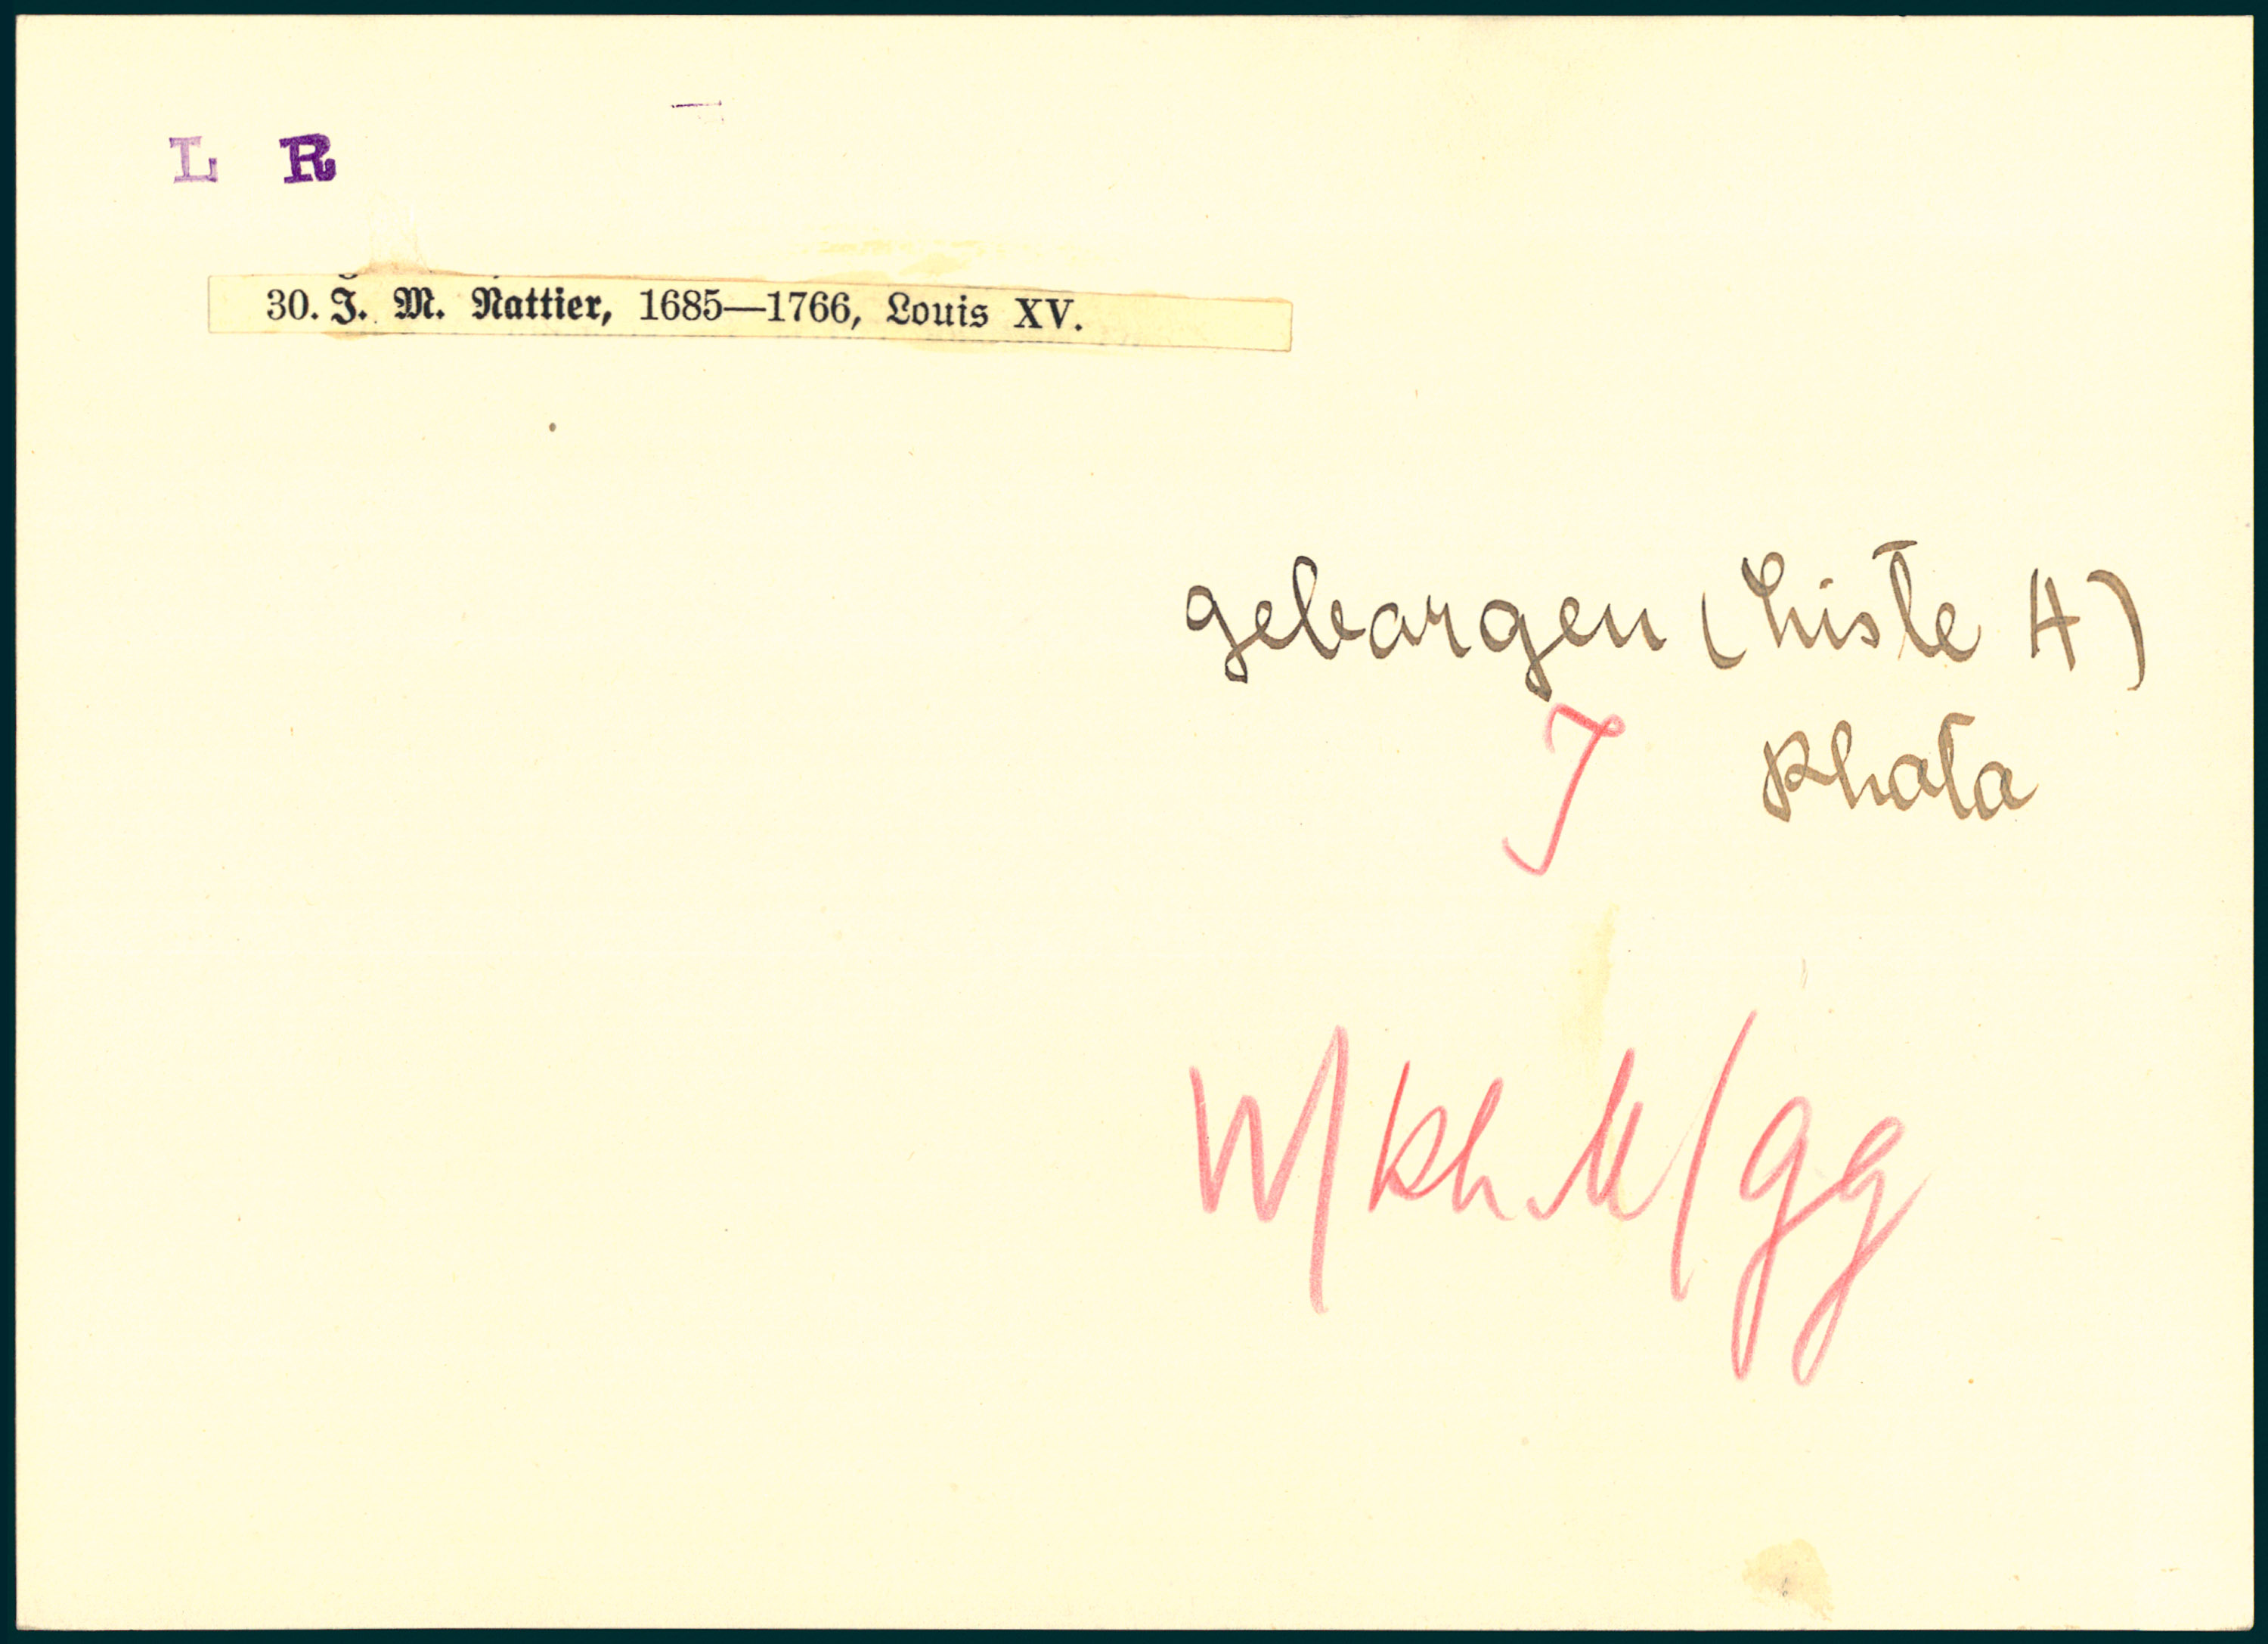 L R
30. J. M. Nattier, 1685—1766, Louis XV.
geborgen (Liste H)
J
Khala
W/kh.M/gg